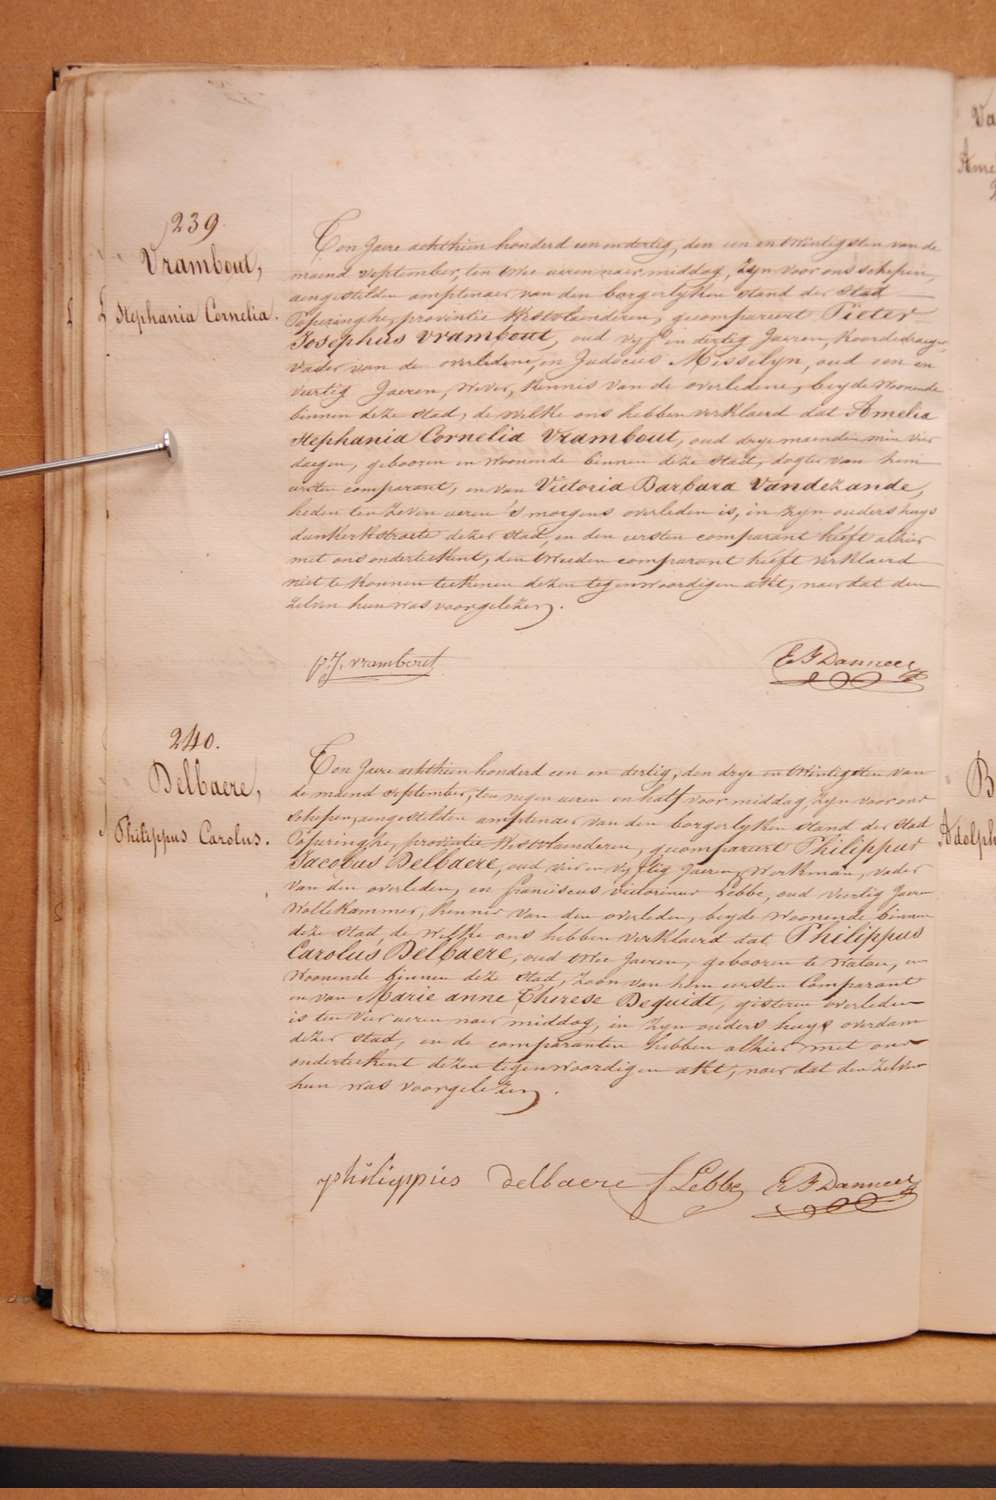 239.
Vrambout,
Stephania Cornelia.
Ten Jaere achthien honderd een en dertig, den een en twintigsten van de
maend September, ten twee ueren naer middag, zyn voor ons schepen,
aengestelden amptenaer van den borgerlyken stand der Stad
Poperinghe, provintie Westvlaenderen, gecompareert Pieter
Josephus Vrambout, oud vyf en dertig Jaeren, Koordedraeger,
vader van de overledene, en Judocus Misselyn, oud een en
veertig Jaeren, Wever, kennis van de overledene, beyde woonende
binnen deze stad, de welke ons hebben verklaerd dat Amelia
Stephania Cornelia Vrambout, oud drye maenden min vier
daegen, gebooren en woonende binnen deze stad, dogter van hem
eersten comparant, en van Victoria Barbara Vandezande,
heden ten zeven ueren 's morgens overleden is, in zyn ouders huys
dunkerkstraete dezer stad, en den eersten comparant heeft alhier
met ons onderteekent, den tweeden comparant heeft verklaerd
niet te konnen teekenen dezen tegenwoordigen akt, naer dat den
zelven hun was voorgelezen.
p.J. vrambout
E F Danneel
240.
Delbaere,
Philippus Carolus.
Ten Jaere achthien honderd een en dertig, den drye en twintigsten van
de maend September, ten negen ueren en half voor middag, zyn voor ons
schepen, aengestelden amptenaer van den borgerlyken stand der stad
Poperinghe, provintie Westvlaenderen, gecompareert Philippus
Jacobus Delbaere, oud vier en vyftig Jaeren, Werkman, vader
van den overleden, en franciscus victorinus Lebbe, oud veertig Jaeren
Wollekammer, kennis van den overleden, beyde woonende binnen
deze stad, de welke ons hebben verklaerd dat Philippus
Carolus Delbaere, oud twee Jaeren, gebooren te watou, en
woonende binnen deze stad, zoon van hem eersten Comparant
en van Marie anne Therese Dequidt, gisteren overleden
is ten vier ueren naer middag, in zyn ouders huys overdam
dezer stad, en de comparanten hebben alhier met ons
onderteekent dezen tegenwoordigen akt, naer dat den zelven
hun was voorgelezen.
philippus delbaere f Lebbe E F Danneel
Va
Ame
B
Adolph